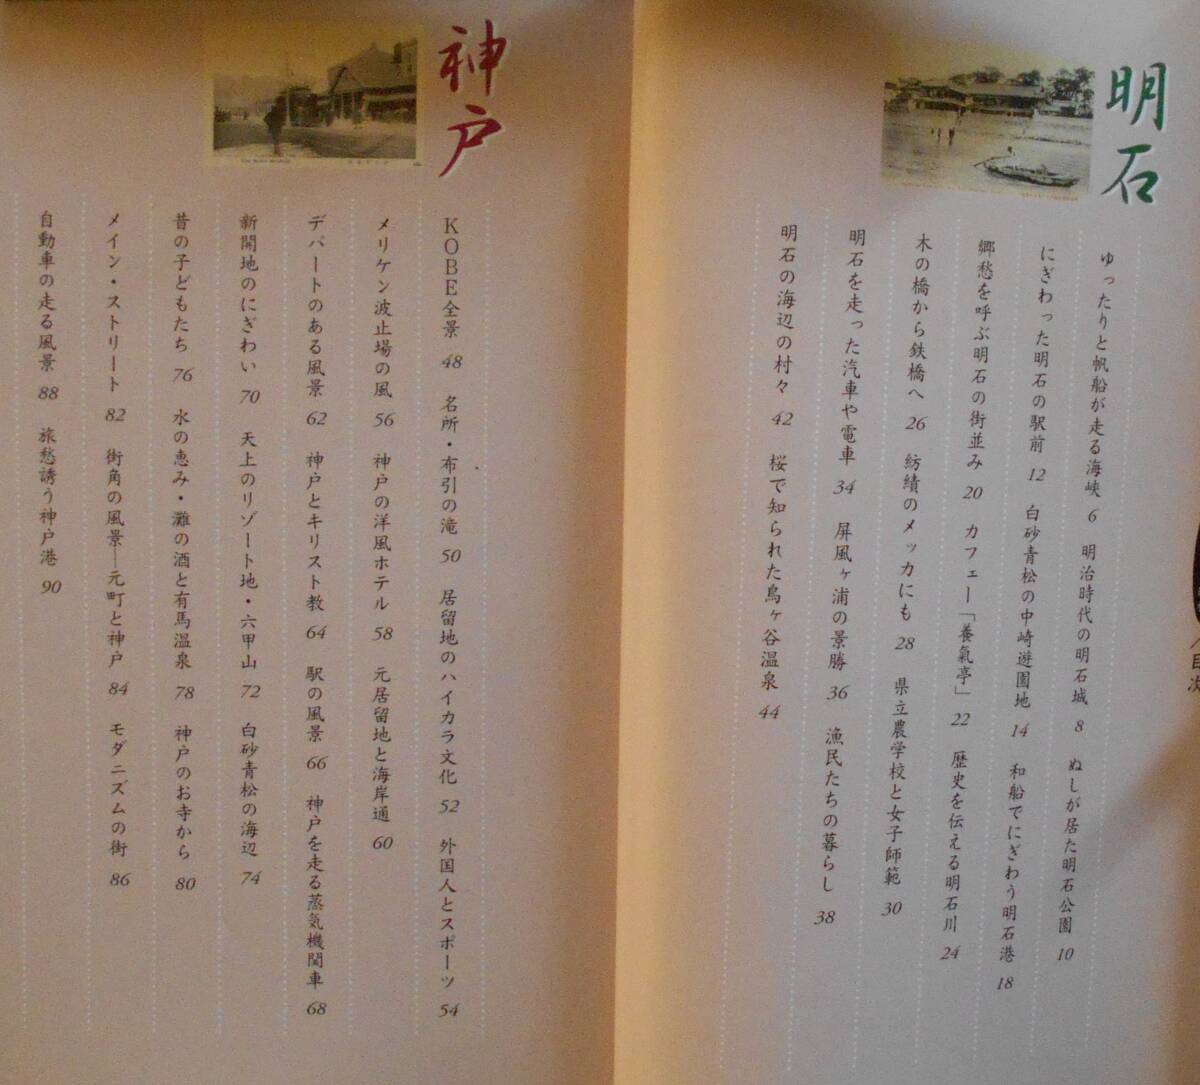 ／目次
明石
ゆったりと帆船が走る海峡 6 明治時代の明石城 8 ぬしが居た明石公園 10
にぎわった明石の駅前 12 白砂青松の中崎遊園地 14 和船でにぎわう明石港 18
郷愁を呼ぶ明石の街並み 20 カフェー「養氣亭」 22 歴史を伝える明石川 24
木の橋から鉄橋へ 26 紡績のメッカにも 28 県立農学校と女子師範 30
明石を走った汽車や電車 34 屏風ヶ浦の景勝 36 漁民たちの暮らし 38
明石の海辺の村々 42 桜で知られた鳥ヶ谷温泉 44
神戸
KOBE全景 48 名所・布引の滝 50 居留地のハイカラ文化 52 外国人とスポーツ 54
メリケン波止場の風 56 神戸の洋風ホテル 58 元居留地と海岸通 60
デパートのある風景 62 神戸とキリスト教 64 駅の風景 66 神戸を走る蒸気機関車 68
新開地のにぎわい 70 天上のリゾート地・六甲山 72 白砂青松の海辺 74
昔の子どもたち 76 水の恵み・灘の酒と有馬温泉 78 神戸のお寺から 80
メイン・ストリート 82 街角の風景―元町と神戸 84 モダニズムの街 86
自動車の走る風景 88 旅愁誘う神戸港 90